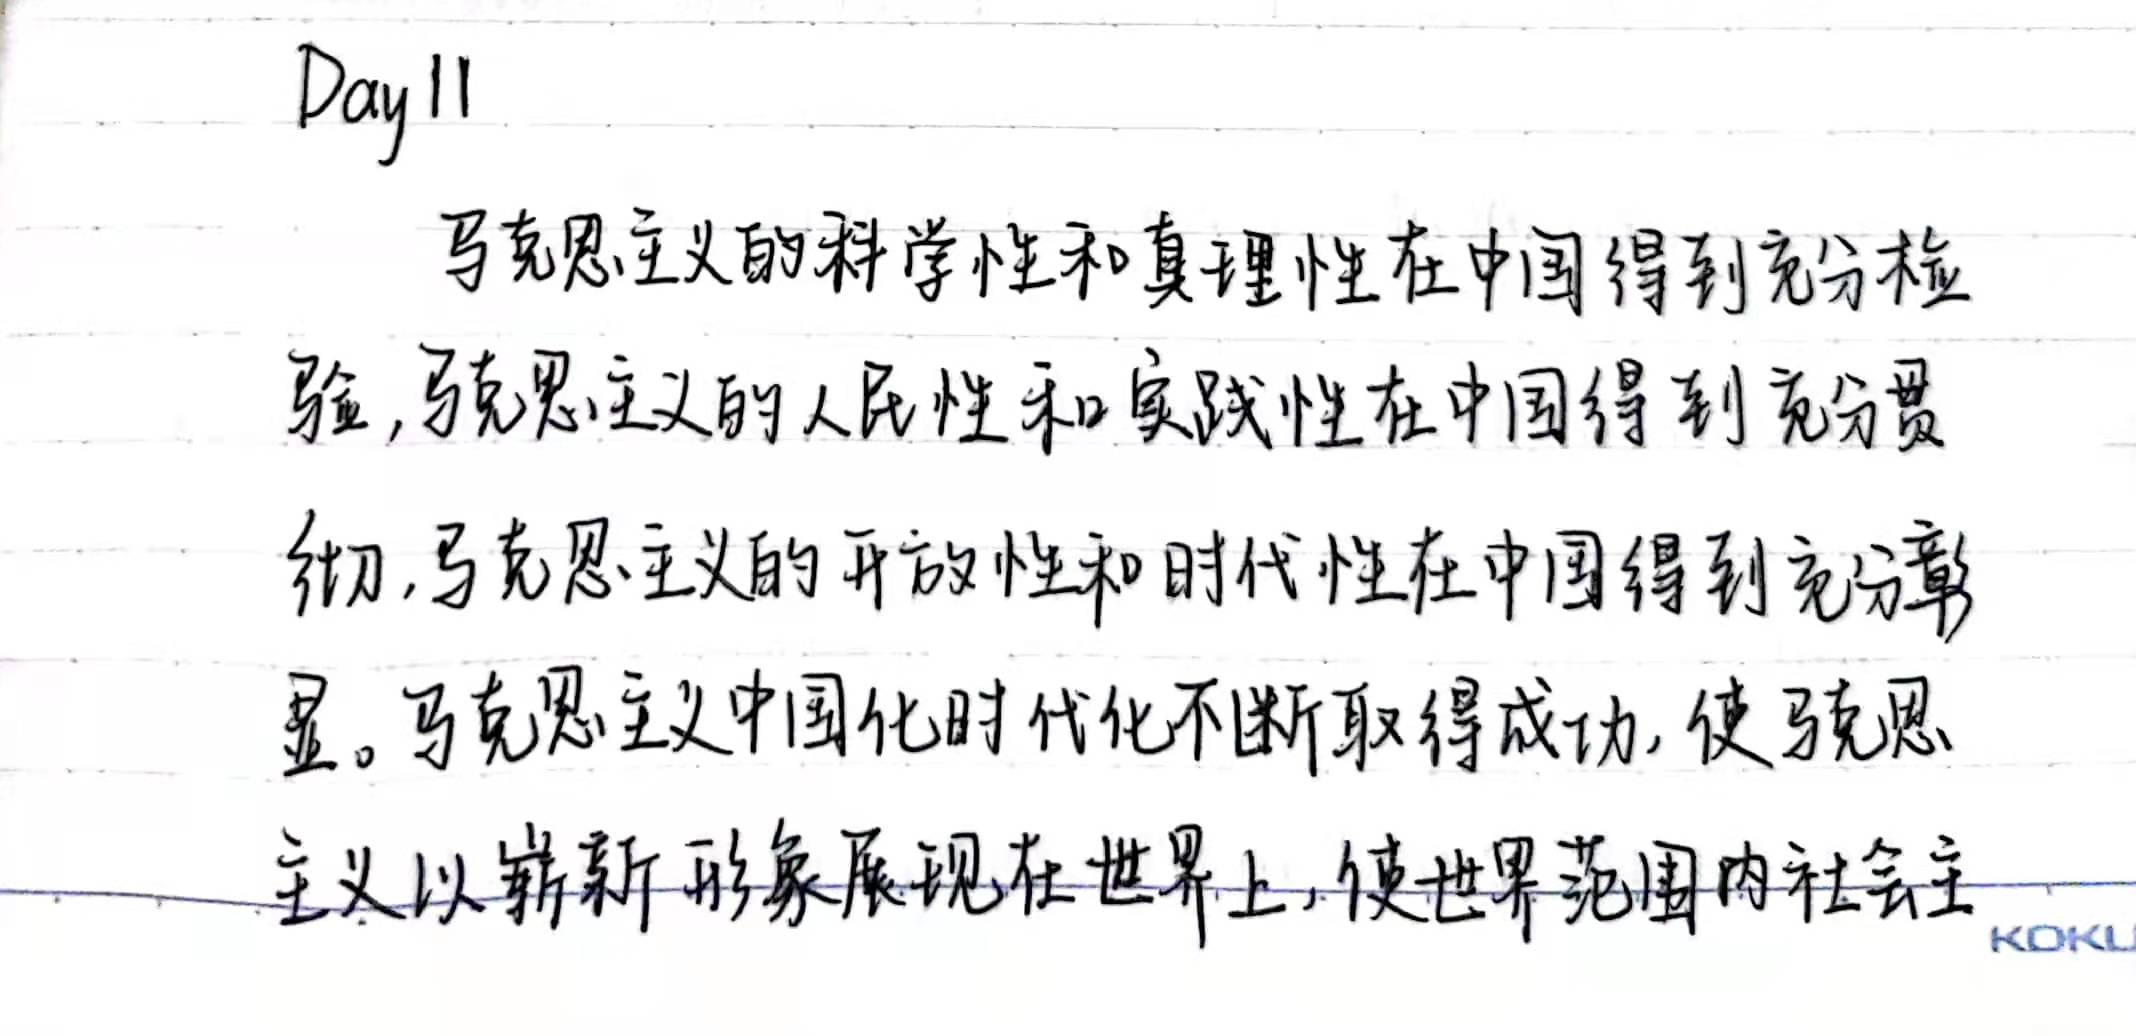 Day 11
马克思主义的科学性和真理性在中国得到充分检
验,马克思主义的人民性和实践性在中国得到充分贯
彻,马克思主义的开放性和时代性在中国得到充分彰
显。马克思主义中国化时代化不断取得成功,使马克思
主义以崭新形象展现在世界上,使世界范围内社会主
KOKU